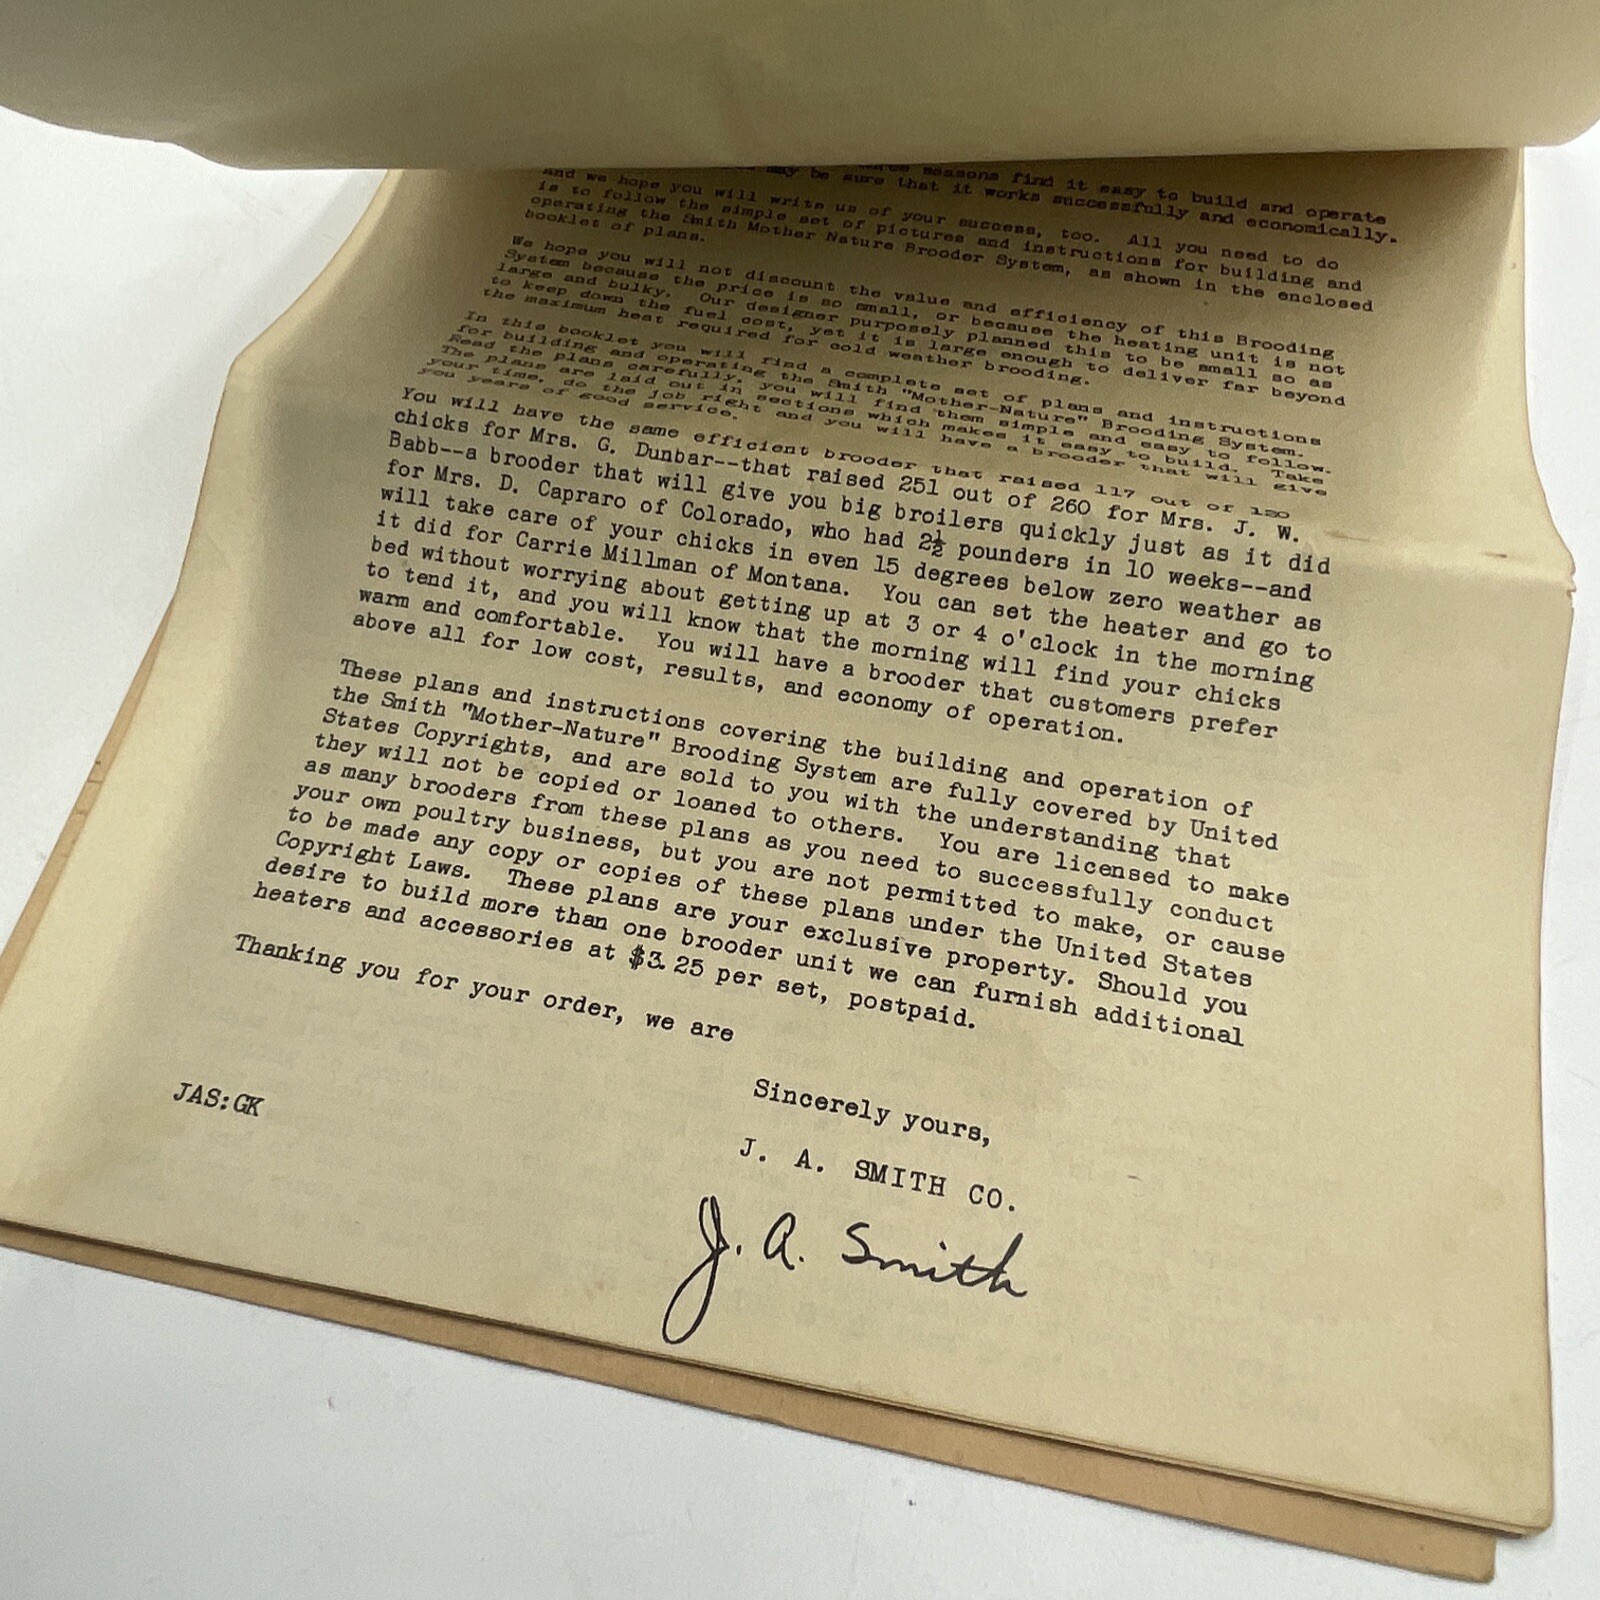 seasons find it easy to build and operate
may be sure that it works successfully and economically.
And we hope you will write us of your success, too. All you need to do
is to follow the simple set of pictures and instructions for building and
operating the Smith Mother Nature Brooder System, as shown in the enclosed
booklet of plans.
We hope you will not discount the value and efficiency of this Brooding
System because the price is so small, or because the heating unit is not
large and bulky. Our designer purposely planned this to be small so as
to keep down the fuel cost, yet it is large enough to deliver far beyond
the maximum heat required for cold weather brooding.
In this booklet you will find a complete set of plans and instructions
for building and operating the Smith "Mother-Nature" Brooding System.
Read the plans carefully, you will find them simple and easy to follow.
The plans are laid out in sections which makes it easy to build. Take
your time, do the job right and you will have a brooder that will give
you years of good service.
You will have the same efficient brooder that raised 117 out of 120
chicks for Mrs. G. Dunbar--that raised 251 out of 260 for Mrs. J. W.
Babb--a brooder that will give you big broilers quickly just as it did
for Mrs. D. Capraro of Colorado, who had 2½ pounders in 10 weeks--and
will take care of your chicks in even 15 degrees below zero weather as
it did for Carrie Millman of Montana. You can set the heater and go to
bed without worrying about getting up at 3 or 4 o'clock in the morning
to tend it, and you will know that the morning will find your chicks
warm and comfortable. You will have a brooder that customers prefer
above all for low cost, results, and economy of operation.
These plans and instructions covering the building and operation of
the Smith "Mother-Nature" Brooding System are fully covered by United
States Copyrights, and are sold to you with the understanding that
they will not be copied or loaned to others. You are licensed to make
as many brooders from these plans as you need to successfully conduct
your own poultry business, but you are not permitted to make, or cause
to be made any copy or copies of these plans under the United States
Copyright Laws. These plans are your exclusive property. Should you
desire to build more than one brooder unit we can furnish additional
heaters and accessories at $3.25 per set, postpaid.
Thanking you for your order, we are
Sincerely yours,
JAS:GK
J. A. SMITH CO.
J. A. Smith